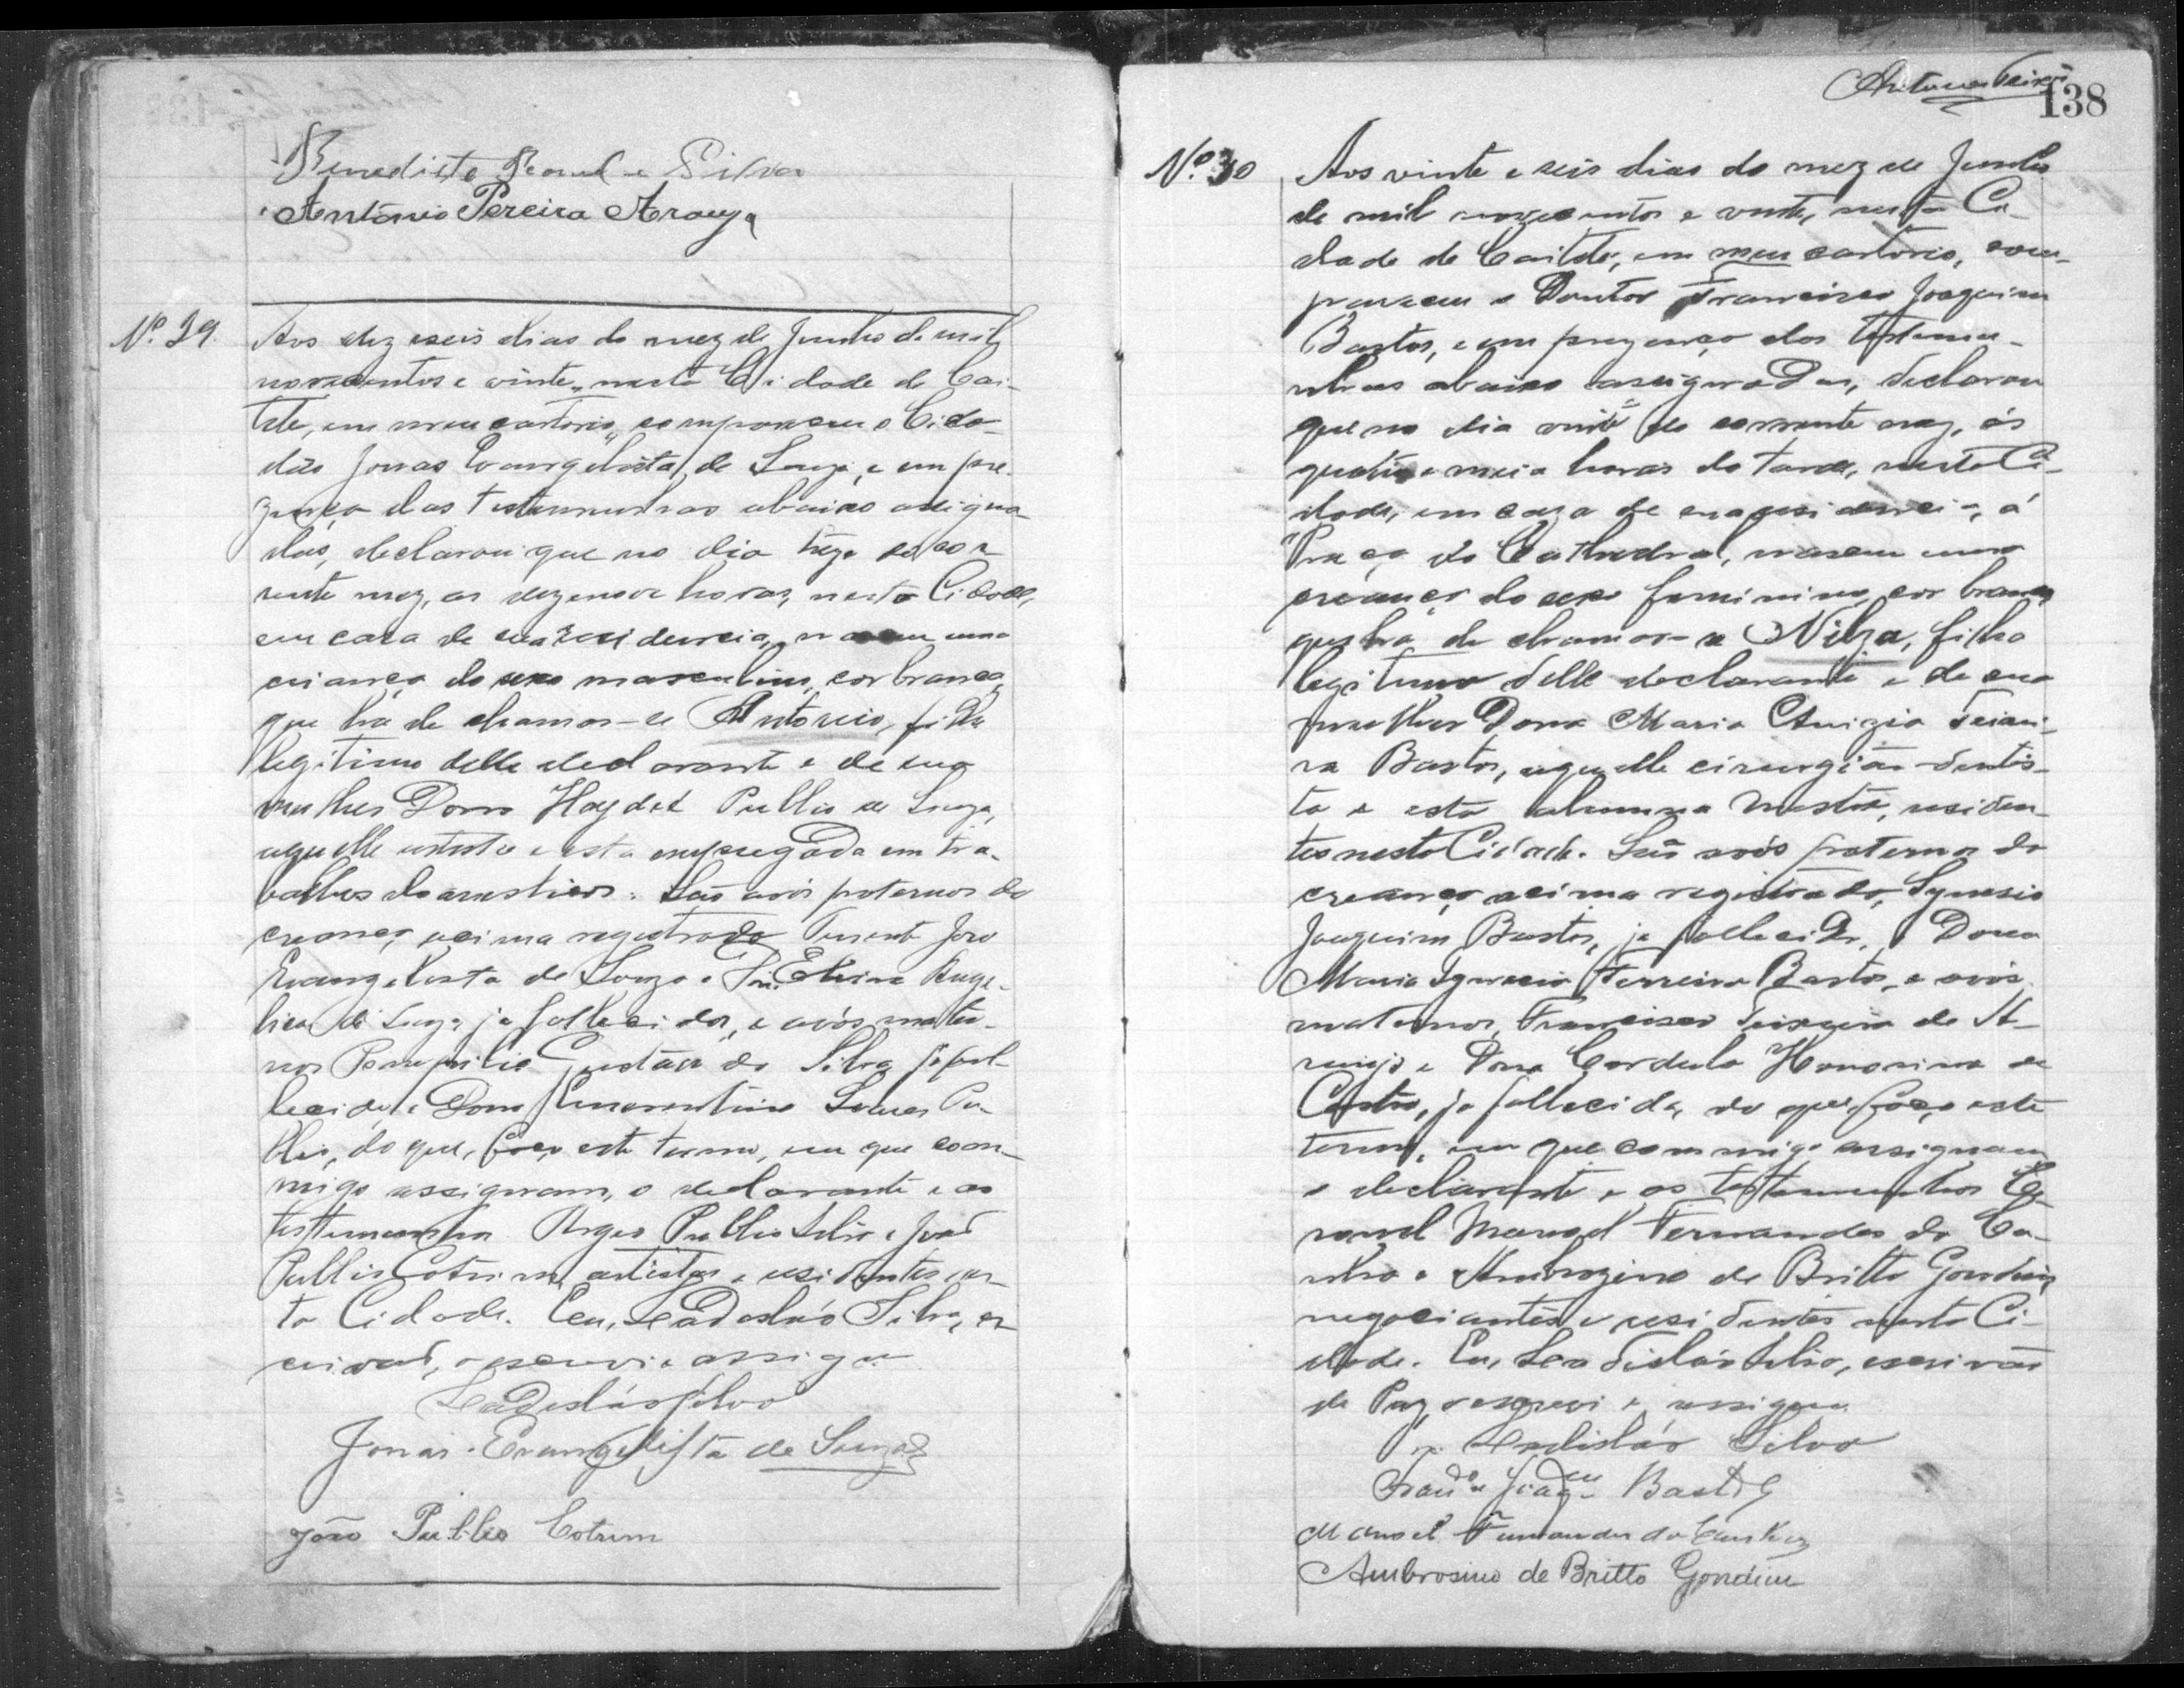 Benedicto Leonel e Silva
Antônio Pereira Araujo
Nº. 29.
Aos dezeseis dias do mez de Junho de mil
novecentos e vinte, nesta Cidade de Cai-
teté, em meu cartorio, compareceu o Cida-
dão Jonas Evangelista de Souza, e em pre-
zença das testemunhas abaixo assigna-
das, declarou que no dia treze do cor-
rente mez, as dezenove horas, nesta Cidade,
em casa de sua residencia, nasceu uma
criança do sexo masculino, cor branca,
que ha de chamar-se Antonio, filho
legitimo delle declarante e de sua
mulher Dona Haydeé Publio de Souza,
aquelle artista e esta empregada em tra-
balhos domesticos. São avós paternos da
creança acima registrada Tenente João
Evangelista de Souza e Dn. Elvira Ange-
lica de Souza já fallecidos, e avós mater-
nos Pompilio da Silva já fal-
lecido, e Dona Pu-
blio, do que, faço este termo, em que com-
migo assignam, o declarante e as
testemunhas Argeo Publio Silva e João
Publio Cotrim, artistas e residentes nes-
ta Cidade. Eu, Ladesláo Silva, es-
crivão, o escrevi e assigno
Ladesláo Silva
Jonas Evangelista de Souza
João Publio Cotrim
Antunes Teixeira
138
Nº. 30
Aos vinte e seis dias do mez de Junho
de mil novecentos e vinte, nesta Ci-
dade de Caiteté, em meu cartorio, com-
pareceu o Doutor Francisco Joaquim
Bastos, e em prezença das testemu-
nhas abaixo assignadas, declarou
que no dia vinte do corrente mez, ás
quatro e meia horas da tarde, nesta Ci-
dade, em caza de sua residencia, á
Praça da Cathedral, nasceu uma
creança do sexo feminino, cor branca,
que ha de chamar-se Nilza, filha
legitima delle declarante e de sua
mulher Dona Maria Anizia Teixei-
ra Bastos, aquelle cirurgião-dentis-
ta e esta alumna mestra, residen-
tes nesta Cidade. São avós paternos da
creança acima registrada, Synesio
Joaquim Bastos, já fallecido, e Dona
Maria Ignacia Ferreira Bastos, e avós
maternos, Francisco Teixeira de A-
raujo e Dona Cordula Honorina de
Castro, já fallecida, do que, faço este
termo, em que commigo assignam
o declarante e as testemunhas Co-
ronel Manoel Fernandes da Cu-
nha e Ambrozino de Britto Gondim,
negociantes e residentes nesta Ci-
dade. Eu, Ladisláo Silva, escrivão
de Paz, o escrevi e assigno.
Ladisláo Silva
Franco Joaqm Bastos
Manoel Fernandes da Cunha
Ambrosino de Britto Gondim